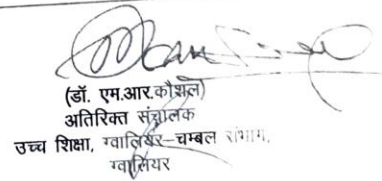 (डॉ. एम.आर.कौशल)
अतिरिक्त संचालक
उच्च शिक्षा, ग्वालियर–चम्बल संभाग,
ग्वालियर